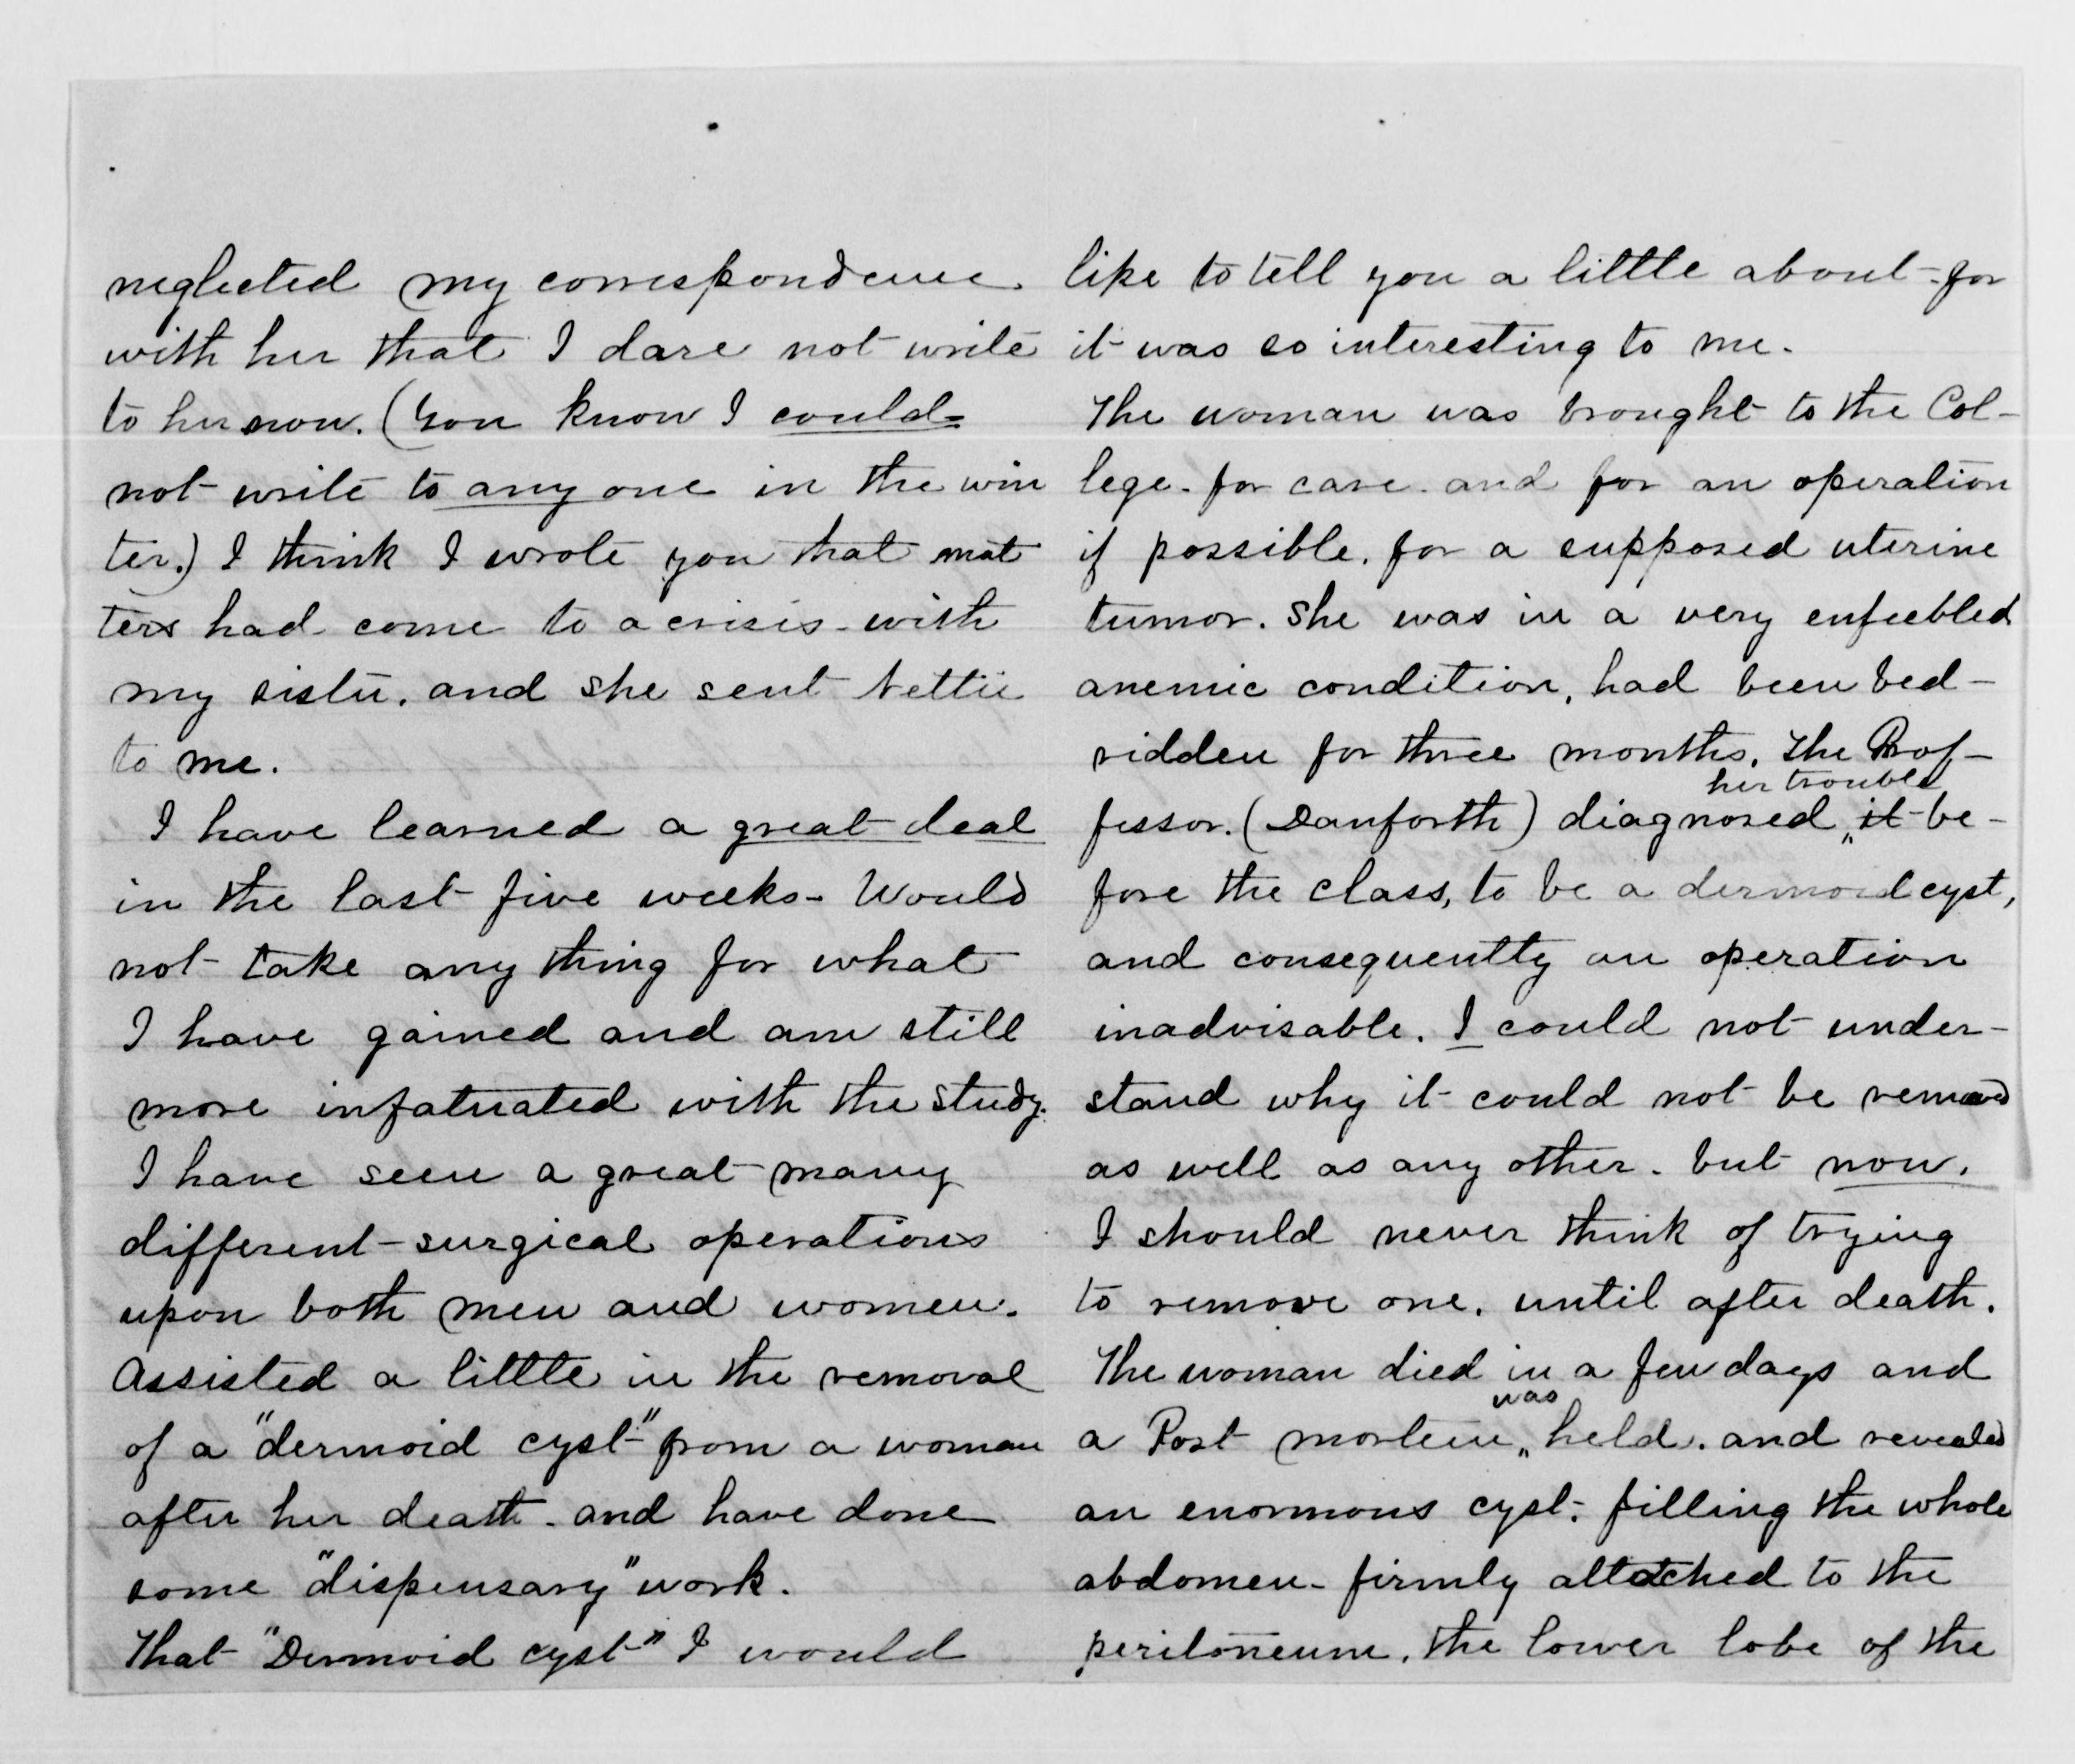 neglected my correspondence
with her that I dare not write
to her now. (You know I could=
not write to any one in the win
ter.) I think I wrote you that mat
ters had come to a crisis - with
my sister. and she sent Nettie
to me.
I have learned a great deal
in the last five weeks - Would
not take any thing for what
I have gained and am still
more infatuated with the study.
I have seen a great many
different surgical operations
upon both men and women.
Assisted a little in the removal
of a "dermoid cyst" from a woman
after her death - and have done
some "dispensary" work.
That "Dermoid cyst" I would
like to tell you a little about - for
it was so interesting to me.
The woman was brought to the Col-
lege - for care - and for an operation
if possible. for a supposed uterine
tumor. She was in a very enfeebled
anemic condition, had been bed-
ridden for three months. The Prof-
her trouble
fessor. (Danforth) diagnosed it be-
fore the class, to be a dermoid cyst,
and consequently an operation
inadvisable. I could not under-
stand why it could not be removed
as well as any other - but now.
I should never think of trying
to remove one. until after death.
The woman died in a few days and
was
a Post mortem held. and revealed
an enormous cyst. filling the whole
abdomen - firmly attatched to the
peritoneum. the lower lobe of the